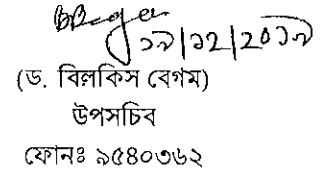 ১৯/১২/২০১৯
(ড. বিলকিস বেগম)
উপসচিব
ফোনঃ ৯৫৪০৩৬২